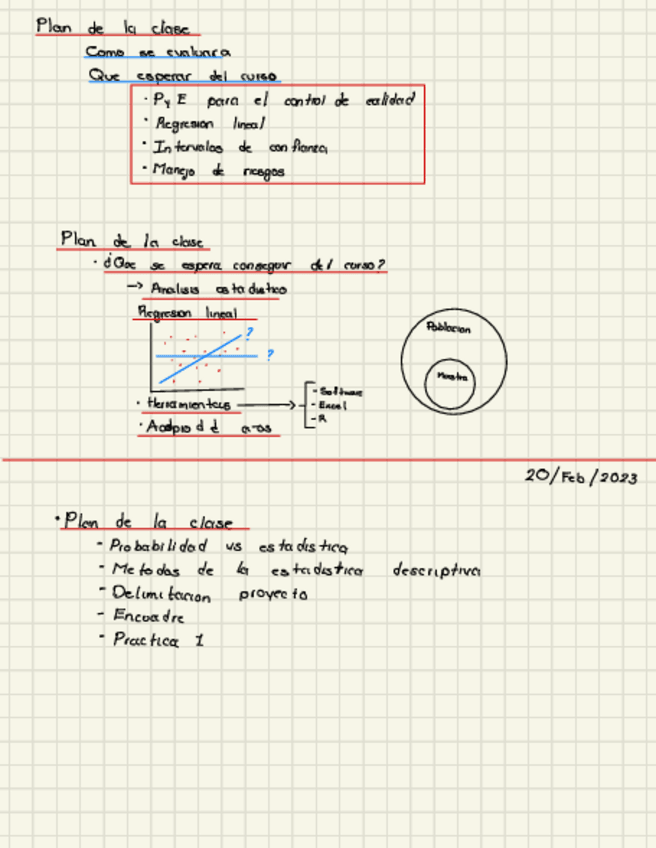 Plan de la clase
Como se evaluara
Que esperar del curso
· P y E para el control de calidad
· Regresion lineal
· Intervalos de confianza
· Manejo de riesgos
Plan de la clase
· ¿Que se espera conseguir del curso?
→ Analisis estadistico
Regresion lineal
?
?
Poblacion
Muestra
· Herramientas
- Software
- Excel
- R
20/Feb/2023
· Plan de la clase
- Probabilidad vs estadistica
- Metodos de la estadistica descriptiva
- Delimitacion proyecto
- Encuadre
- Practica 1